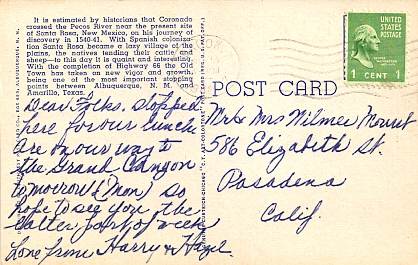 It is estimated by historians that Coronado
crossed the Pecos River near the present site
of Santa Rosa, New Mexico, on his journey of
discovery in 1540-41. With Spanish colonization
Santa Rosa became a lazy village of the
plains, the natives tending their cattle and
sheep—to this day it is quaint and interesting.
With the completion of Highway 66 the Old
Town has taken on new vigor and growth,
being one of the most important stopping
points between Albuquerque, N. M. and
Amarillo, Texas.
Dear Folks. Stopped
here for our lunch
are on our way to
the Grand Canyon
tomorrow (Mon) so
hope to see you the
latter part of week
Love from Harry & Hazel
POST CARD
UNITED STATES
POSTAGE
1 CENT 1
Mr & Mrs Wilmer
586 Elizabeth St.
Pasadena
Calif.